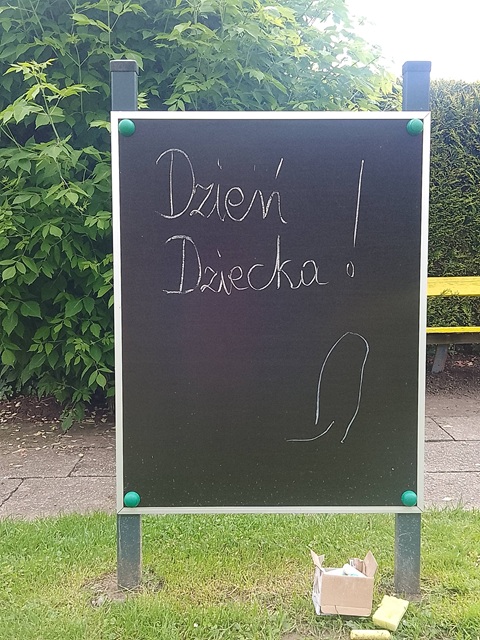 Dzień
Dziecka!